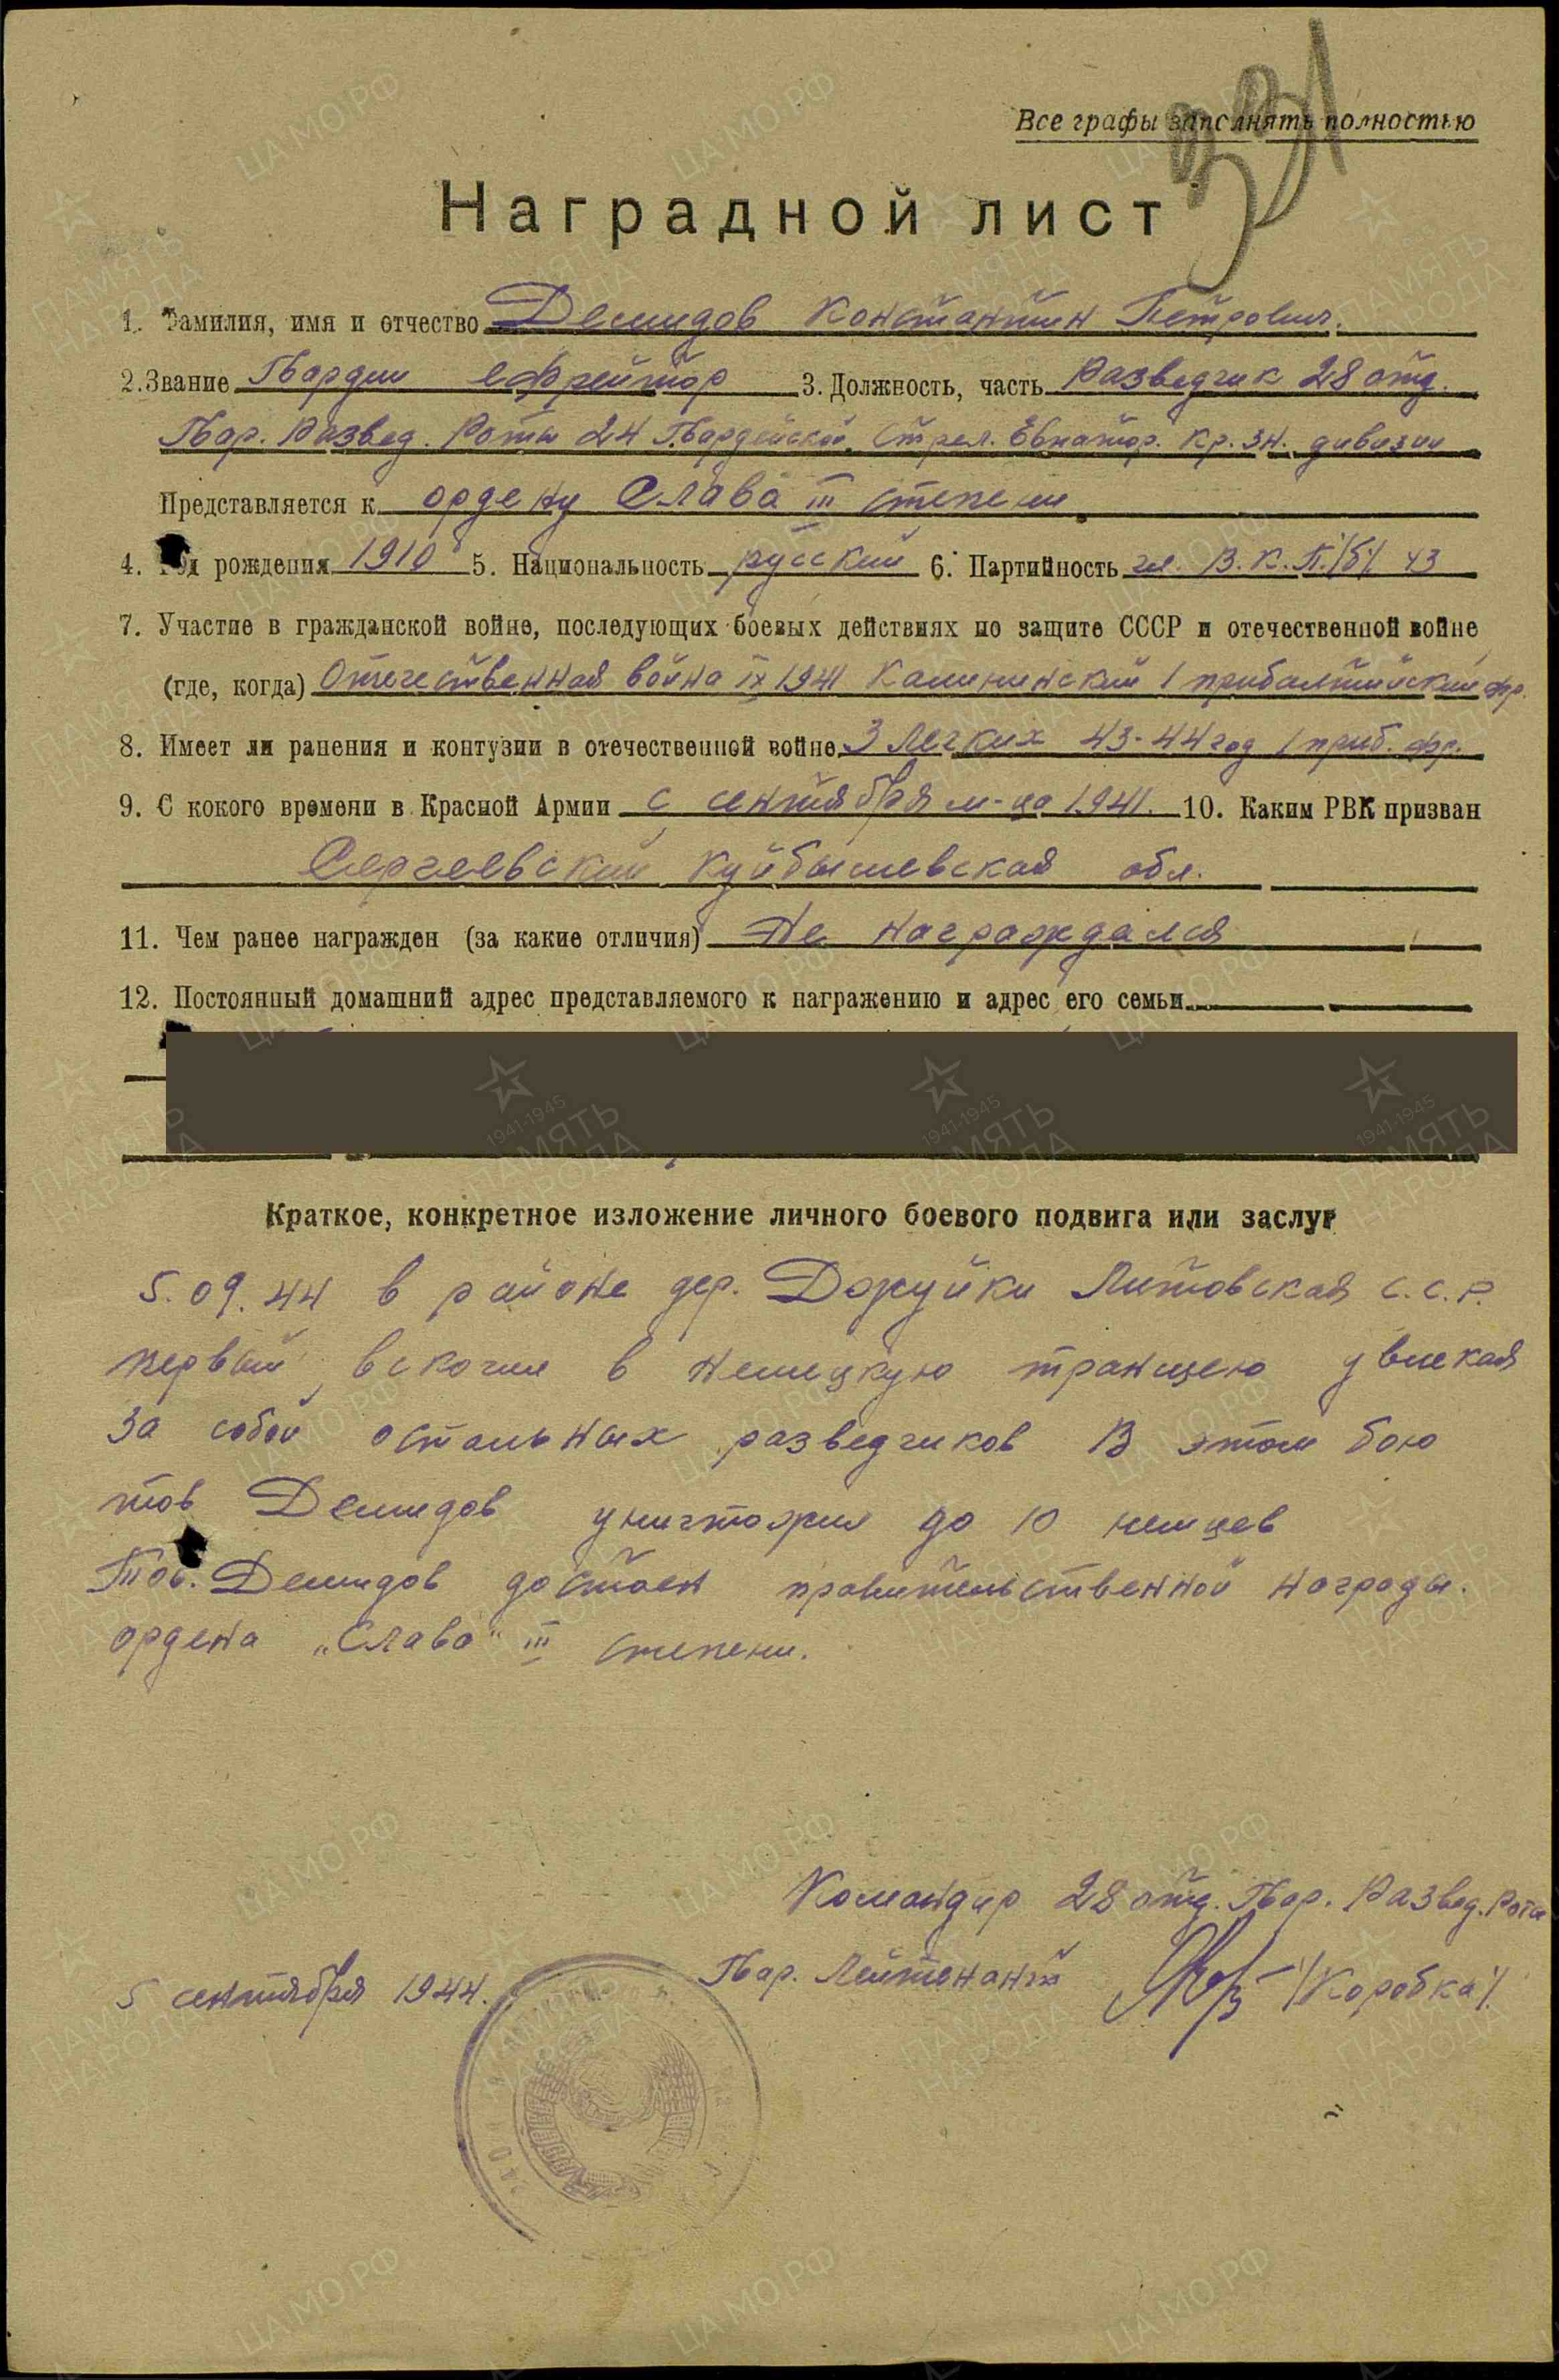 Все графы заполнять полностью
Наградной лист
1. Фамилия, имя и отчество Демидов Константин Петрович.
2. Звание Гвардии ефрейтор 3. Должность, часть Разведчик 28 отд.
Гвар. Развед. Роты 24 Гвардейской Стрел. Евпатор. Кр. Зн. дивизии
Представляется к ордену Слава III степени
4. Год рождения 1910 5. Национальность русский 6. Партийность чл. В.К.П./б/ 43
7. Участие в гражданской войне, последующих боевых действиях по защите СССР и отечественной войне
(где, когда) Отечественная война IX 1941 Калининский 1 прибалтийский фр.
8. Имеет ли ранения и контузии в отечественной войне 3 легких 43-44 год 1 приб. фр.
9. С кокого времени в Красной Армии с сентября м-ца 1941. 10. Каким РВК призван
Сергеевский Куйбышевская обл.
11. Чем ранее награжден (за какие отличия) Не награждался
12. Постоянный домашний адрес представляемого к награждению и адрес его семьи
Краткое, конкретное изложение личного боевого подвига или заслуг
5.09.44 в районе дер. Джуйки Литовская С.С.Р.
первый вскочил в немецкую траншею увлекая
за собой остальных разведчиков В этом бою
тов Демидов уничтожил до 10 немцев
Тов. Демидов достоен правительственной награды.
ордена „Слава" III степени.
Командир 28 отд. Гвар. Развед. Роты
Гвар. Лейтенант /Коробка/.
5 сентября 1944.
ЦА МО РФ
ПАМЯТЬ НАРОДА
1941-1945